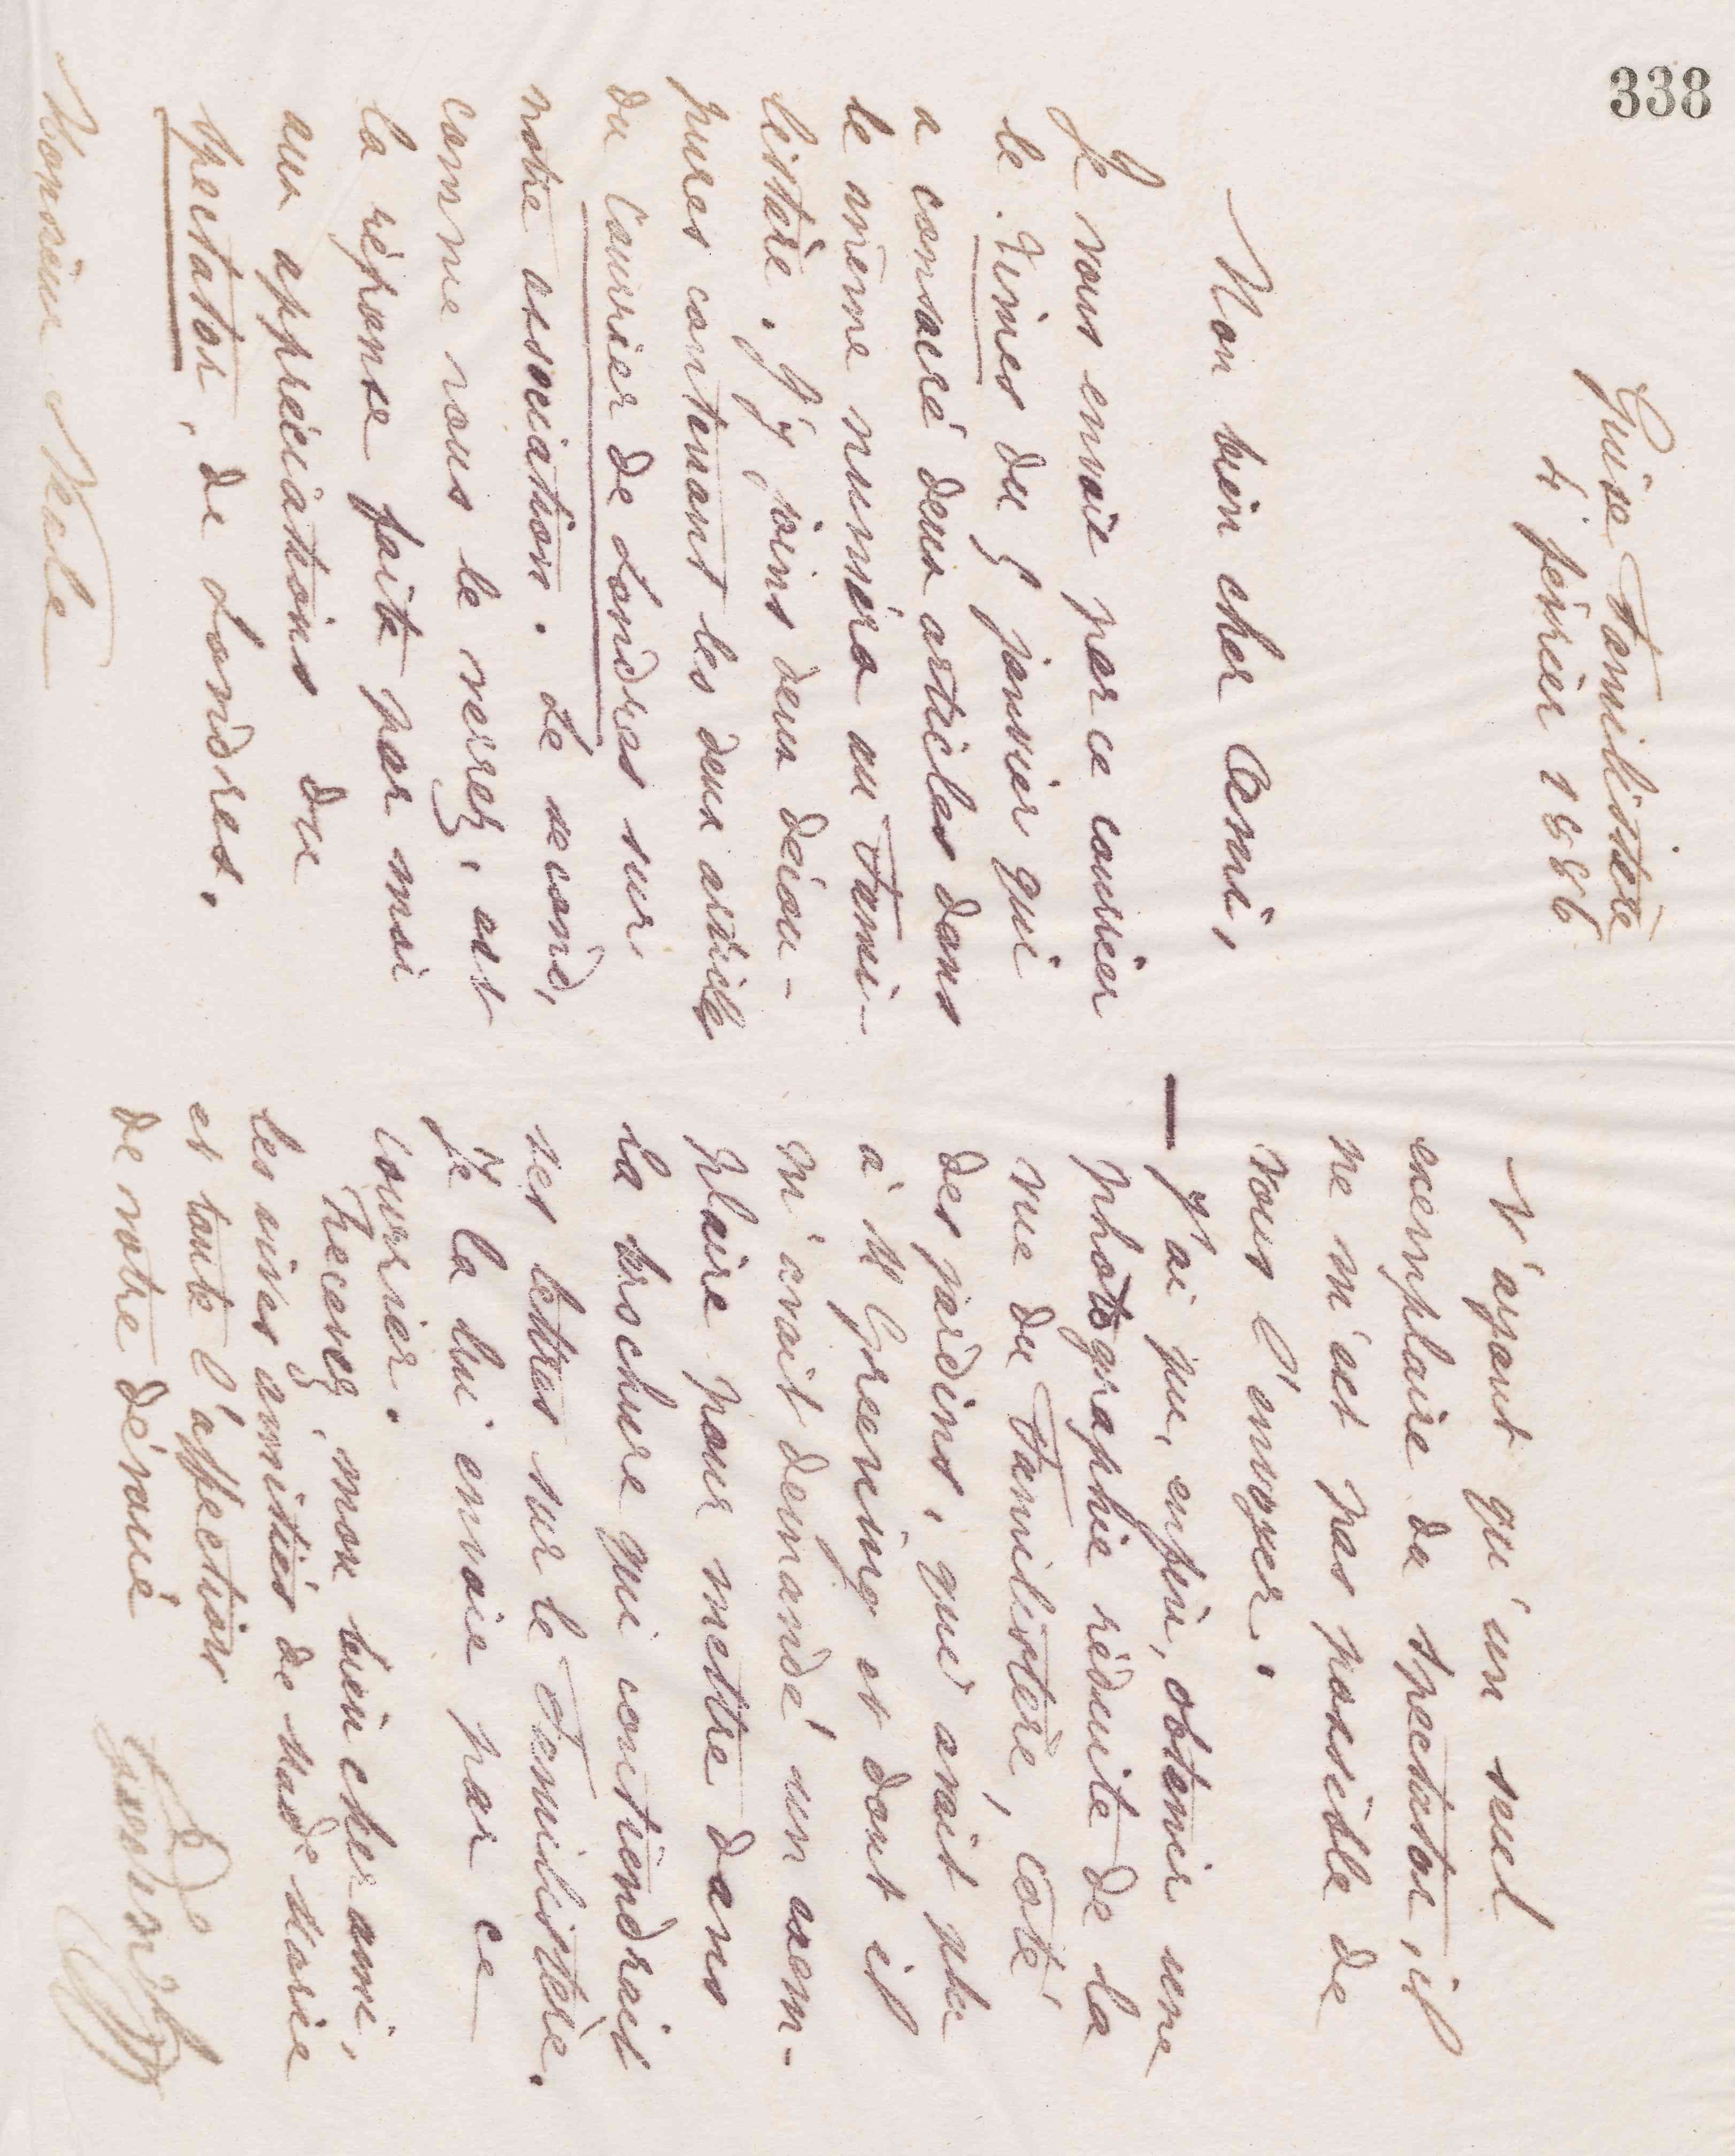 338
Guise Familistère
4 février 1886
Mon bien cher Ami,
Je vous envoie par ce courrier
le Times du 8 janvier qui
a consacré deux articles dans
le même numéro au Fami-
listère. J'y joins deux décou-
pures contenant les deux articles
du Courrier de Londres sur
notre association. Le second,
comme vous le verrez, est
la réponse faite par moi
aux appréciations du
Spectator, de Londres.
Monsieur Neale
N'ayant qu'un seul
exemplaire du Spectator, il
ne m'est pas possible de
vous l'envoyer.
— J'ai pu, enfin, obtenir une
photographie réduite de la
vue du Familistère, côté
des jardins, qui avait plu
à M Greening et dont il
m'avait demandé un exem-
plaire pour mettre dans
la brochure qui contiendrait
ses lettres sur le Familistère.
Je la lui envoie par ce
courrier.
Recevez, mon bien cher ami,
les vives amitiés de Made Marie
et toute l'affection
de votre dévoué
Godin